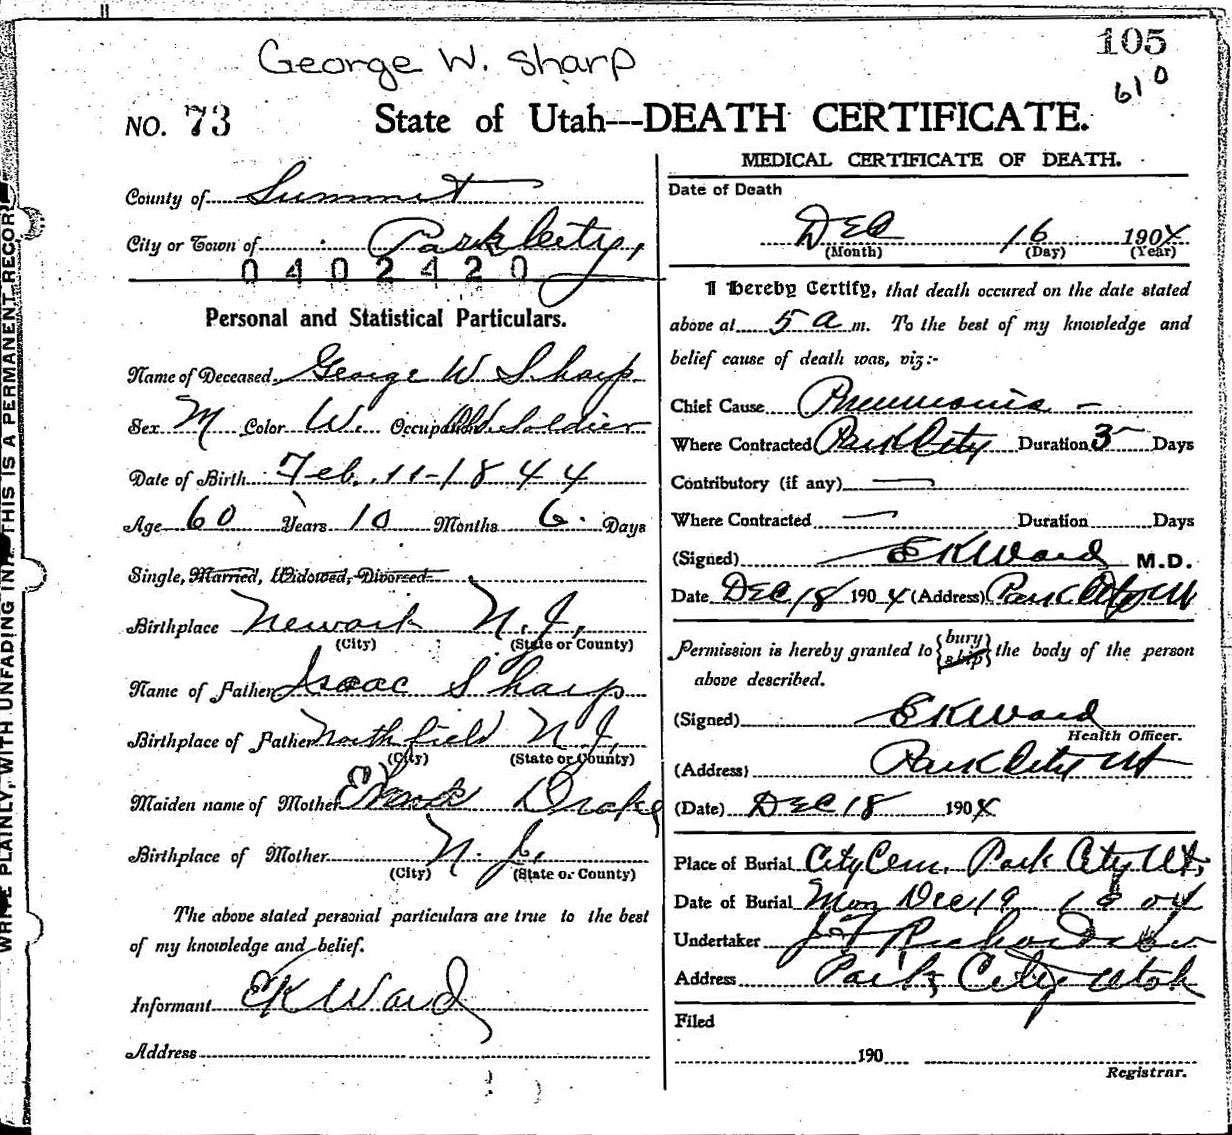 George W. Sharp
105
610
NO. 73 State of Utah---DEATH CERTIFICATE.
County of Summit
City or Town of Park City,
0402420
Personal and Statistical Particulars.
Name of Deceased George W Sharp
Sex M Color W. Occupation Old Soldier
Date of Birth Feb. 11-1844
Age 60 Years 10 Months 6. Days
Single, Married, Widowed, Divorced
Birthplace Newark N.J,
(City) (State or County)
Name of Father Isaac Sharp
Birthplace of Father Northfield N J,
(City) (State or County)
Maiden name of Mother Drake
Birthplace of Mother N. J,
(City) (State or County)
The above stated personal particulars are true to the best
of my knowledge and belief.
Informant EK Ward
Address
MEDICAL CERTIFICATE OF DEATH.
Date of Death
DEC 16 1904
(Month) (Day) (Year)
I Hereby Certify, that death occured on the date stated
above at 5 a m. To the best of my knowledge and
belief cause of death was, viz:-
Chief Cause Pneumonia -
Where Contracted Park City Duration 3 Days
Contributory (if any)
Where Contracted Duration Days
(Signed) EK Ward M.D.
Date DEC 18 1904 (Address) Park City Ut
Permission is hereby granted to {bury
ship} the body of the person
above described.
(Signed) EK Ward
Health Officer.
(Address) Park City Ut
(Date) DEC 18 1904
Place of Burial City Cem. Park City Ut,
Date of Burial Mon Dec 19 1904
Undertaker Richardson
Address Park City Utah
Filed
190
Registrar.
WRITE PLAINLY, WITH UNFADING INK. THIS IS A PERMANENT RECORD